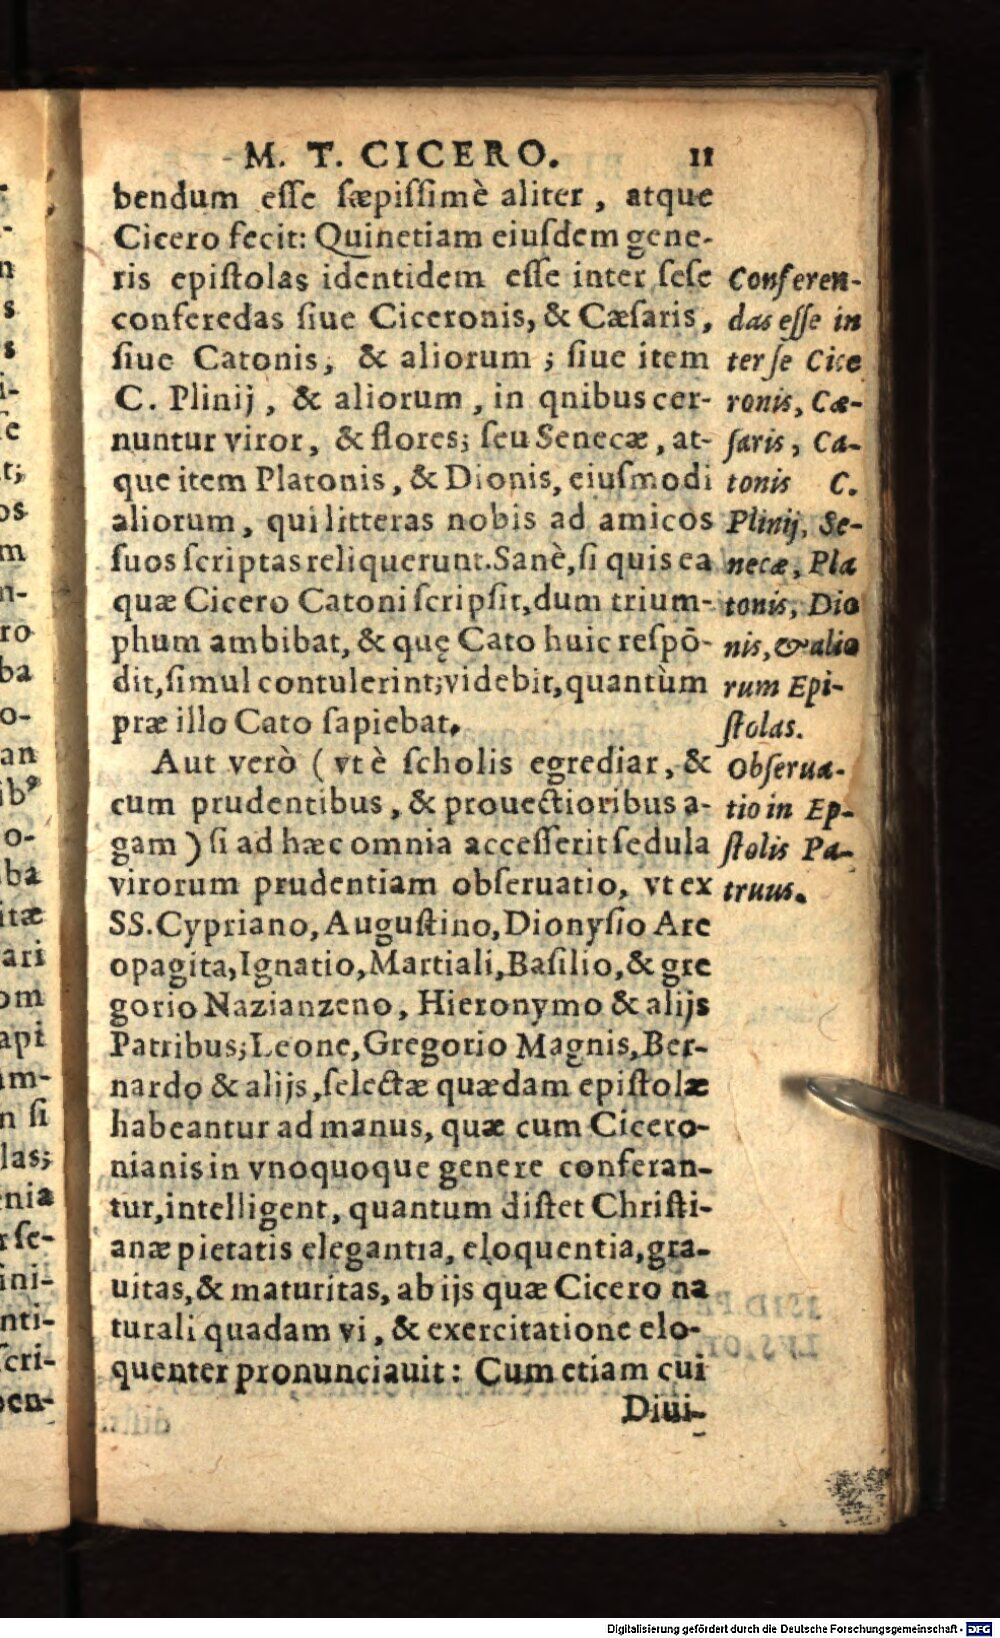 M. T. CICERO. 11
bendum eſſe ſæpiſſimè aliter, atque
Cicero fecit: Quinetiam eiuſdem gene-
ris epiſtolas identidem eſſe inter ſeſe
conferedas ſiue Ciceronis, & Cæſaris,
ſiue Catonis, & aliorum; ſiue item
C. Plinij, & aliorum, in qnibus cer-
nuntur viror, & flores; ſeu Senecæ, at-
que item Platonis, & Dionis, eiuſmodi
aliorum, qui litteras nobis ad amicos
ſuos ſcriptas reliquerunt. Sanè, ſi quis ea
quæ Cicero Catoni ſcripſit, dum trium-
phum ambibat, & quę Cato huic reſpõ-
dit, ſimul contulerint; videbit, quantùm
præ illo Cato ſapiebat.
Aut verò (vt è ſcholis egrediar, &
cum prudentibus, & prouectioribus a-
gam) ſi ad hæc omnia acceſſerit ſedula
virorum prudentiam obſeruatio, vt ex
SS. Cypriano, Auguſtino, Dionyſio Are
opagita, Ignatio, Martiali, Baſilio, & gre
gorio Nazianzeno, Hieronymo & alijs
Patribus; Leone, Gregorio Magnis, Ber-
nardo & alijs, ſelectæ quædam epiſtolæ
habeantur ad manus, quæ cum Cicero-
nianis in vnoquoque genere conferan-
tur, intelligent, quantum diſtet Chriſti-
anæ pietatis elegantia, eloquentia, gra-
uitas, & maturitas, ab ijs quæ Cicero na
turali quadam vi, & exercitatione elo-
quenter pronunciauit: Cum etiam cui
Diui-
Conferen-
das eſſe in
ter ſe Cice
ronis, Cæ-
ſaris, Ca-
tonis C.
Plinij, Se-
necæ, Pla
tonis, Dio
nis, & alio
rum Epi-
ſtolas.
Obſerua-
tio in Ep-
ſtolis Pa-
truus.
Digitalisierung gefördert durch die Deutsche Forschungsgemeinschaft - DFG